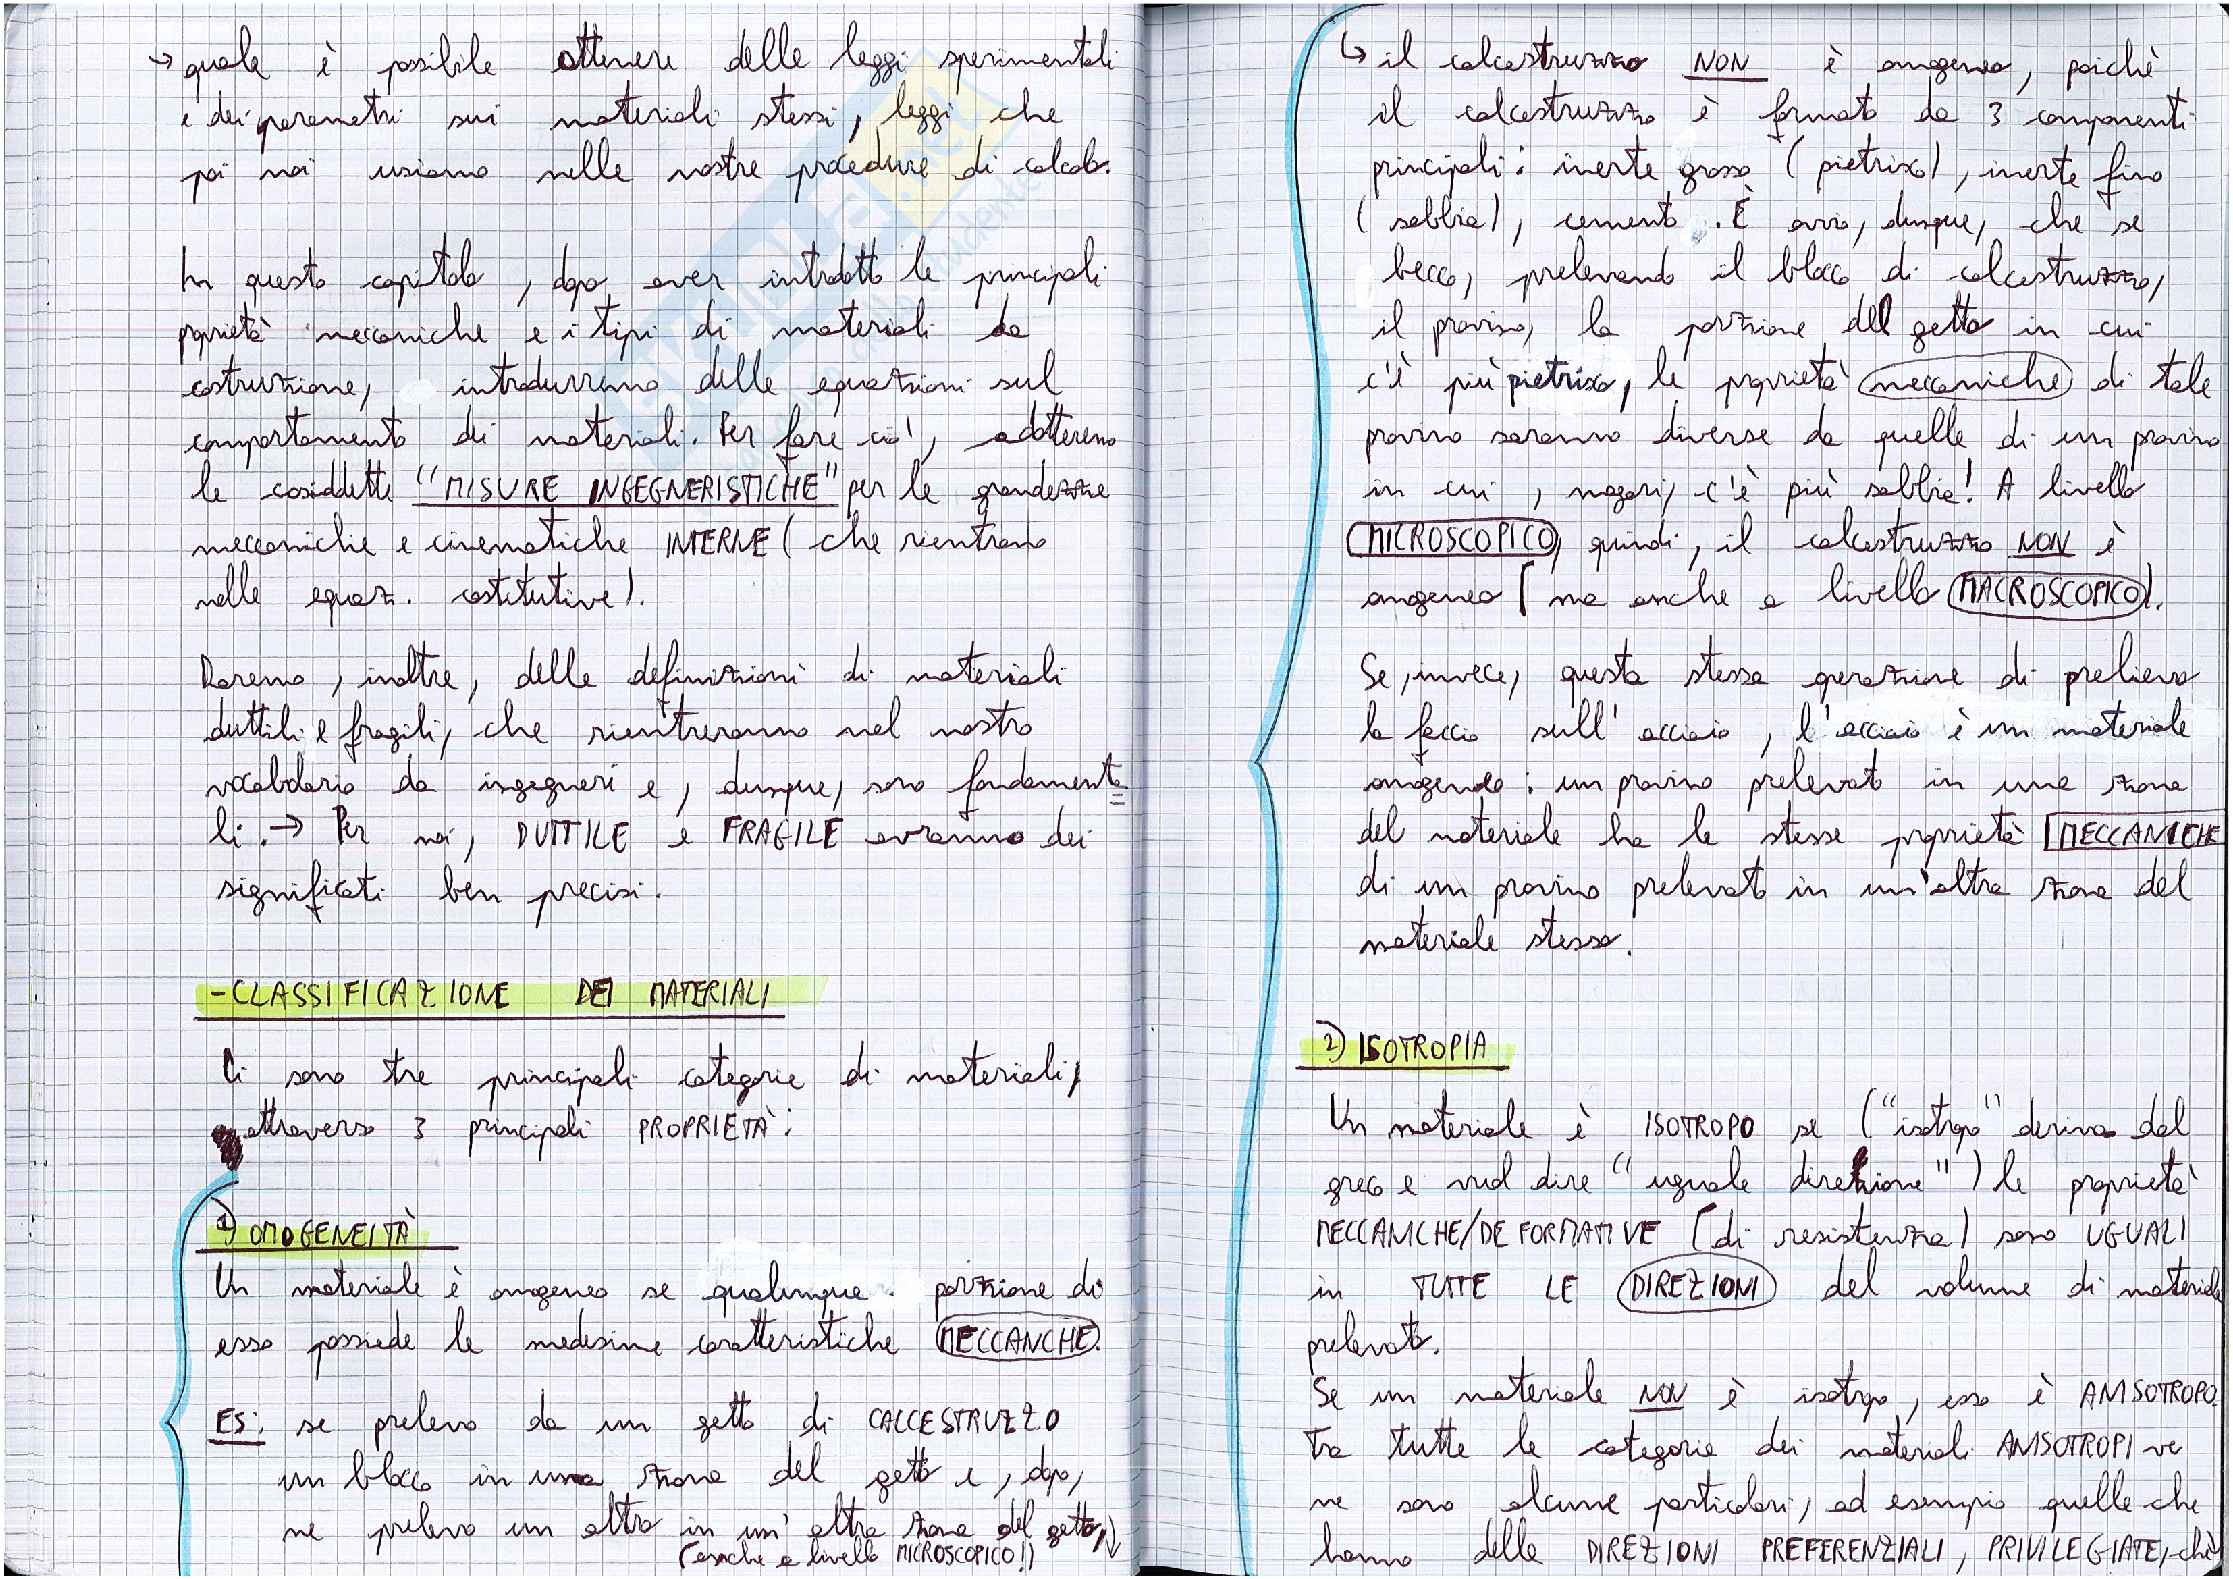 → quale è possibile ottenere delle leggi sperimentali
e dei parametri sui materiali stessi, leggi che
poi noi usiamo nelle nostre procedure di calcolo.
In questo capitolo, dopo aver introdotto le principali
proprietà meccaniche e i tipi di materiali da
costruzione, introdurremo delle equazioni sul
comportamento dei materiali. Per fare ciò, adotteremo
le cosiddette "MISURE INGEGNERISTICHE" per le grandezze
meccaniche e cinematiche INTERNE (che rientrano
nelle equaz. costitutive).
Daremo, inoltre, delle definizioni di materiali
duttili e fragili, che rientreranno nel nostro
vocabolario da ingegneri e, dunque, sono fondamenta=
li. → Per noi, DUTTILE e FRAGILE avranno dei
significati ben precisi.
- CLASSIFICAZIONE DEI MATERIALI
Ci sono tre principali categorie di materiali,
attraverso 3 principali PROPRIETÀ:
1) OMOGENEITÀ
Un materiale è omogeneo se qualunque porzione di
esso possiede le medesime caratteristiche MECCANCHE.
ES: se prelevo da un getto di CALCESTRUZZO
un blocco in una zona del getto e, dopo,
ne prelevo un altro in un'altra zona del getto, ↓
(anche a livello MICROSCOPICO!)
↳ il calcestruzzo NON è omogeneo, poichè
il calcestruzzo è formato da 3 componenti
principali: inerte grosso (pietrisco), inerte fino
(sabbia), cemento. È ovvio, dunque, che se
becco, prelevando il blocco di calcestruzzo,
il provino, la porzione del getto in cui
c'è più pietrisco, le proprietà meccaniche di tale
provino saranno diverse da quelle di un provino
in cui, magari, c'è più sabbia! A livello
MICROSCOPICO, quindi, il calcestruzzo NON è
omogeneo (ma anche a livello MACROSCOPICO).
Se, invece, questa stessa operazione di prelievo
la faccio sull'acciaio, l'acciaio è un materiale
omogeneo: un provino prelevato in una zona
del materiale ha le stesse proprietà MECCANICHE
di un provino prelevato in un'altra zona del
materiale stesso.
2) ISOTROPIA
Un materiale è ISOTROPO se ("isotropo" deriva dal
greco e vuol dire "uguale direzione") le proprietà
MECCANICHE/DEFORMATIVE (di resistenza) sono UGUALI
in TUTTE LE DIREZIONI del volume di materiale
prelevato.
Se un materiale NON è isotropo, esso è ANISOTROPO.
Tra tutte le categorie dei materiali ANISOTROPI ve
ne sono alcune particolari, ad esempio quelle che
hanno delle DIREZIONI PREFERENZIALI, PRIVILEGIATE, chè